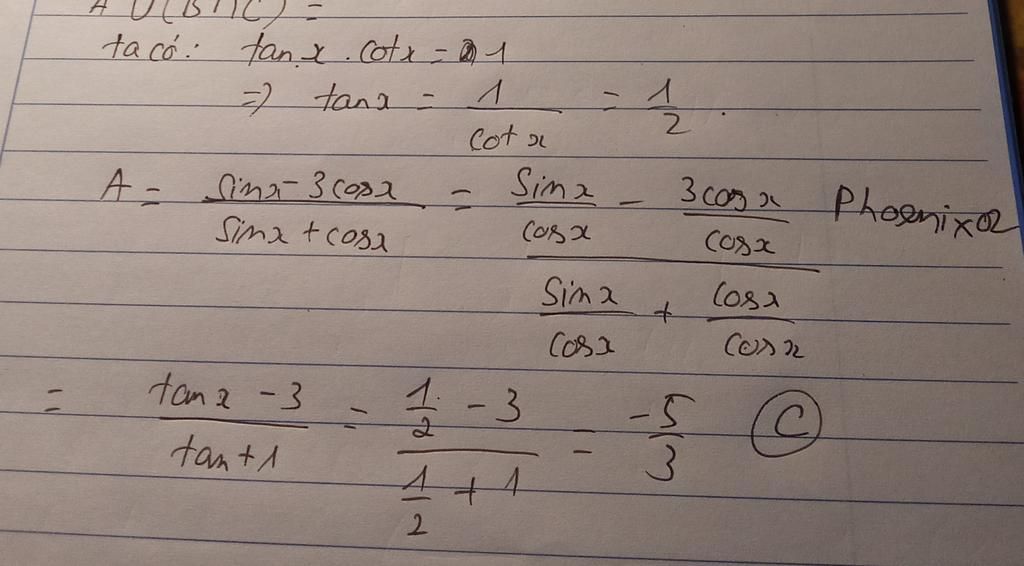 A U(B∩C) =
ta có: tan x . cotx = 1
=> tanx = 1/cot x = 1/2 .
A = (sinx - 3cosx)/(sinx + cosx) = (sinx/cosx - 3cosx/cosx)/(sinx/cosx + cosx/cosx) Phoenix02
= (tanx - 3)/(tan + 1) = (1/2 - 3)/(1/2 + 1) = -5/3 C